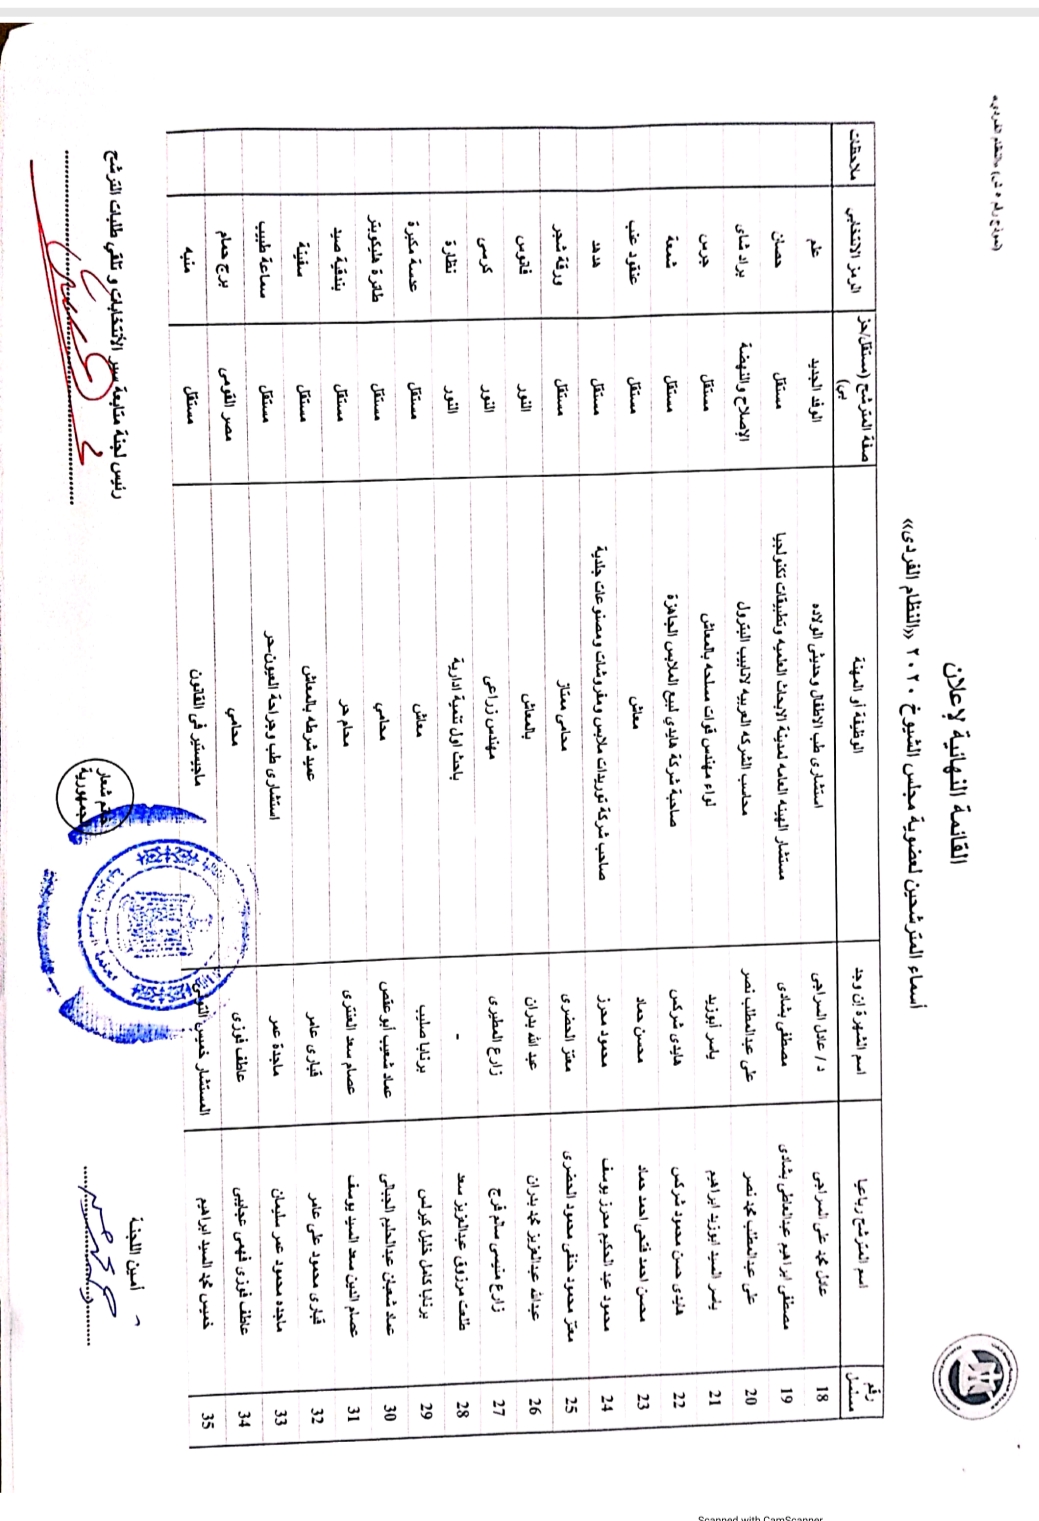 (نموذج رقم ٥ ش) «النظام الفردي»
القائمة النهائية لإعلان
أسماء المترشحين لعضوية مجلس الشيوخ ٢٠٢٠ «النظام الفردى»
رقم مسلسل اسم المترشح رباعيا اسم الشهرة إن وجد الوظيفة أو المهنة صفة المترشح (مستقل/حزبي) الرمز الانتخابي ملاحظات
18 عادل محمد على السراجى د / عادل السراجى استشارى طب الاطفال وحديثى الولاده الوفد الجديد علم
19 مصطفى ابراهيم عبدالعاطى بشادى مصطفى بشادى مستشار الهيئه العامه لمدينة الابحاث العلميه وتطبيقات تكنولجيا مستقل حصان
20 على عبدالمطلب محمد نصر على عبدالمطلب نصر محاسب الشركه العربيه لانابيب البترول الإصلاح والنهضة براد شاى
21 ياسر السيد ابوزيد ابراهيم ياسر أبوزيد لواء مهندس قوات مسلحه بالمعاش مستقل جرس
22 هايدى حسن محمود شركس هايدى شركس صاحبة شركة هايدي لبيع الملابس الجاهزة مستقل شمعة
23 محسن احمد فتحى احمد حماد محسن حماد معاش مستقل عنقود عنب
24 محمود عبد الحكيم محرز يوسف محمود محرز صاحب شركة توريدات ملابس ومفروشات ومصنوعات جلدية مستقل هدهد
25 معتز محمود حنفى محمود الحضرى معتز الحضرى محامى ممتاز مستقل ورقة شجر
26 عبدالله عبدالعزيز محمد بدران عبد الله بدران بالمعاش النور فانوس
27 زارع منيسى سالم فرج زارع المطيرى مهندس زراعى النور كرسى
28 طلعت مرزوق عبدالعزيز سعد - باحث اول تنمية ادارية النور نظارة
29 برنابا كامل خليل كيرلس برنابا صليب معاش مستقل عدسة مكبرة
30 عماد شعبان عبدالحليم الجبالى عماد شعيب أبوعقص محامي مستقل طائرة هليكوبتر
31 عصام الدين سعد السيد يوسف عصام سعد العنترى محام حر مستقل بندقية صيد
32 قبارى محمود على عامر قبارى عامر عميد شرطه بالمعاش مستقل سفينة
33 ماجده محمود عمر سليمان ماجدة عمر استشارى طب وجراحة العيون-حر مستقل سماعة طبيب
34 عاطف فوزى فهمى عجايبى عاطف فوزى محامي مصر القومى برج حمام
35 خميس محمد السيد ابراهيم المستشار خميس التونى ماجيستير فى القانون مستقل منبه
أمين اللجنة
خاتم شعار
الجمهورية
رئيس لجنة متابعة سير الأنتخابات و تلقي طلبات الترشح